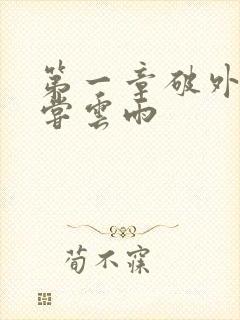 第一章破外
尝雲雨
荀不寐